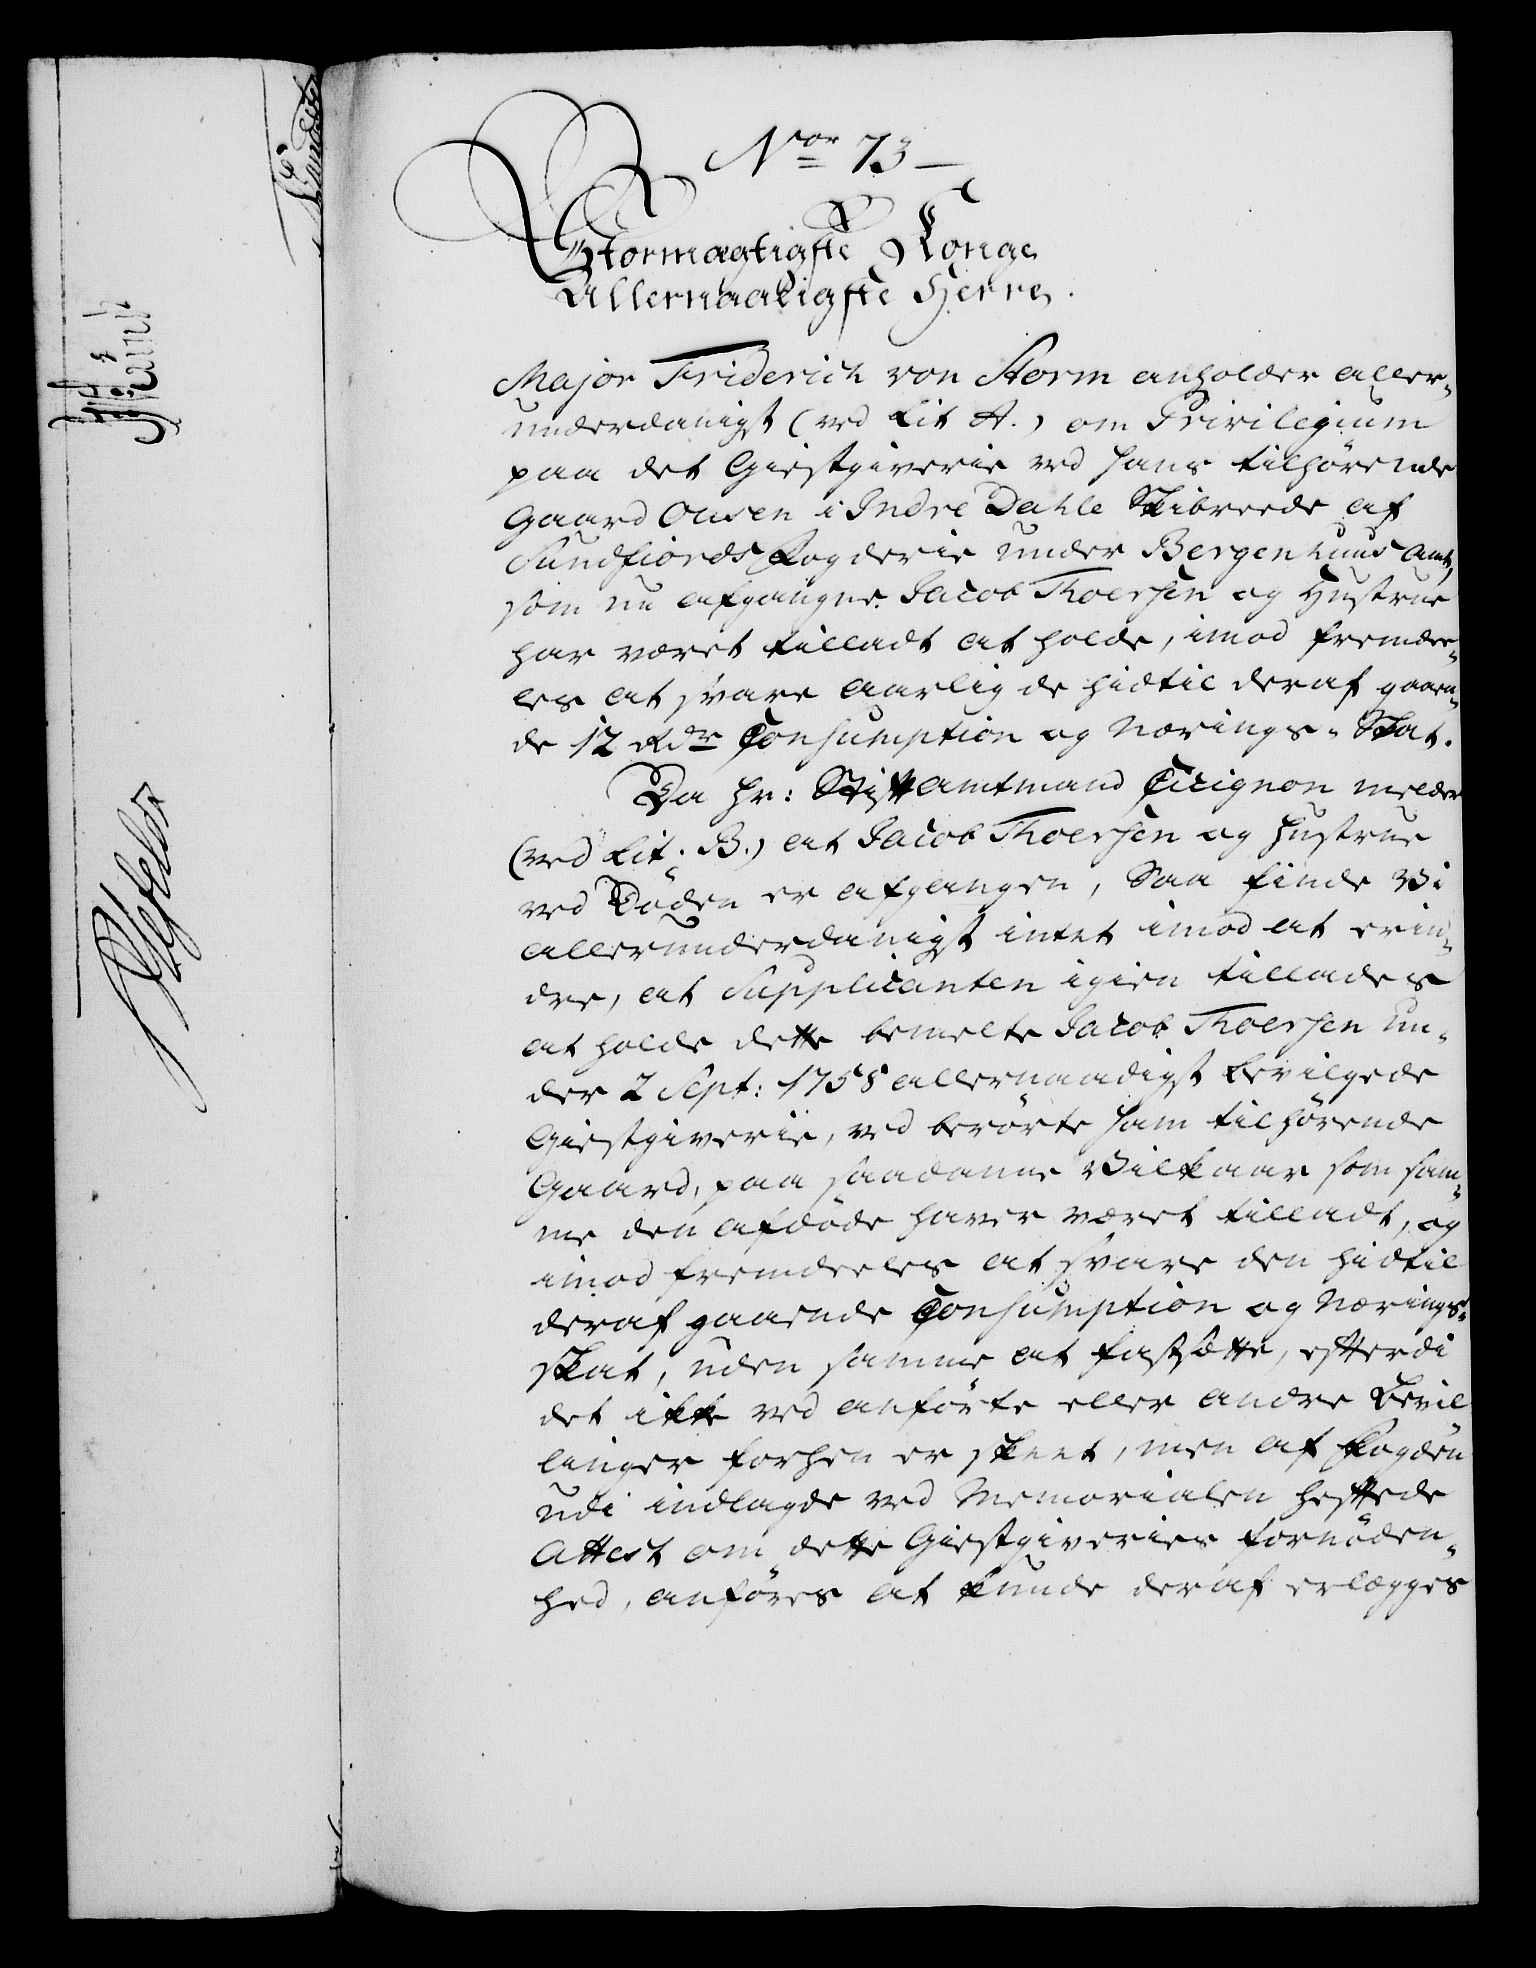 No:r 73
Stormægtigste Konge
Allernaadigste Herre.
Major Friderich von Storm anholder aller-
underdanigst (ved Lit A.) om Privilegium
paa det Giestgiverie ved hans tilhörende
Gaard Ousen i Indre Dahle Skibreede af
Sundfiords Fogderie under Bergenhuus Amt,
som nu afgangne Jacob Thoersen og Hustrue
har været tilladt at holde, imod fremdee-
les at svare aarlig de hidtil deraf gaaen-
de 12 Rdr Consumption og Nærings-Skat.
Da Hr: Stiftamtmand Cicignon melder
(ved Lit: B.) at Jacob Thoersen og Hustrue
ved Döden er afgangen, Saa finde Vi
allerunderdanigst intet imod at erin-
dre, at Supplicanten igien tillades
at holde dette bemelte Jacob Thoersen un-
der 2 Sept: 1758 allernaadigst bevilgede
Giestgiverie, ved berörte ham tilhörende
Gaard, paa saadanne Vilkaar som sam-
me den afdöde haver været tilladt, og
imod fremdeeles at svare den hidtil
deraf gaaende Consumption og Nærings-
Skat, uden samme at fastsætte, efterdi
det ikke ved anförte eller andre Bevil
linger forhen er skeet, men af Fogden
udi indlagde ved Memorialen heftede
Attest om dette Giestgiveries fornöden-
hed, anföres at kunde deraf erlægges